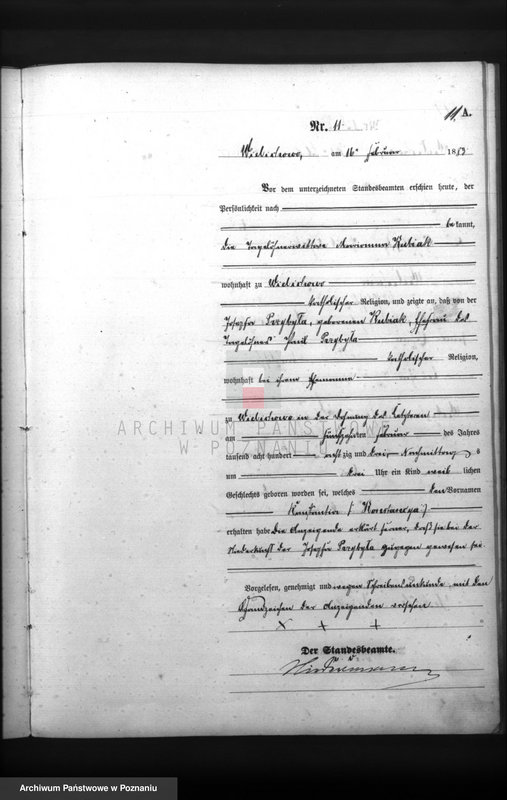 11 A.
Nr. 11
am 16n Februar 1883
Vor dem unterzeichneten Standesbeamten erschien heute, der
Persönlichkeit nach
bekannt,
die Tagelöhnerwittwe Marianna Kubiak
wohnhaft zu
katholischer Religion, und zeigte an, daß von der
Josepha Przybyła, geborenen Kubiak, Ehefrau des
Tagelöhners Przybyła
katholischer Religion,
wohnhaft bei ihrem Ehemanne
zu in der Wohnung des Letzteren
am fünfzehnten Februar des Jahres
tausend acht hundert acht zig und drei, Nachmittags
um drei Uhr ein Kind weib lichen
Geschlechts geboren worden sei, welches den Vornamen
Konstantia (Konstancya)
erhalten habe Die Anzeigende erklärt ferner, daß sie bei der
Niederkunft der Josepha Przybyła zugegen gewesen sei
Vorgelesen, genehmigt und wegen Schreibensunkunde mit den
Handzeichen der Anzeigenden versehen
× + +
Der Standesbeamte.
ARCHIWUM PAŃSTWOWE
W POZNANIU
Archiwum Państwowe w Poznaniu